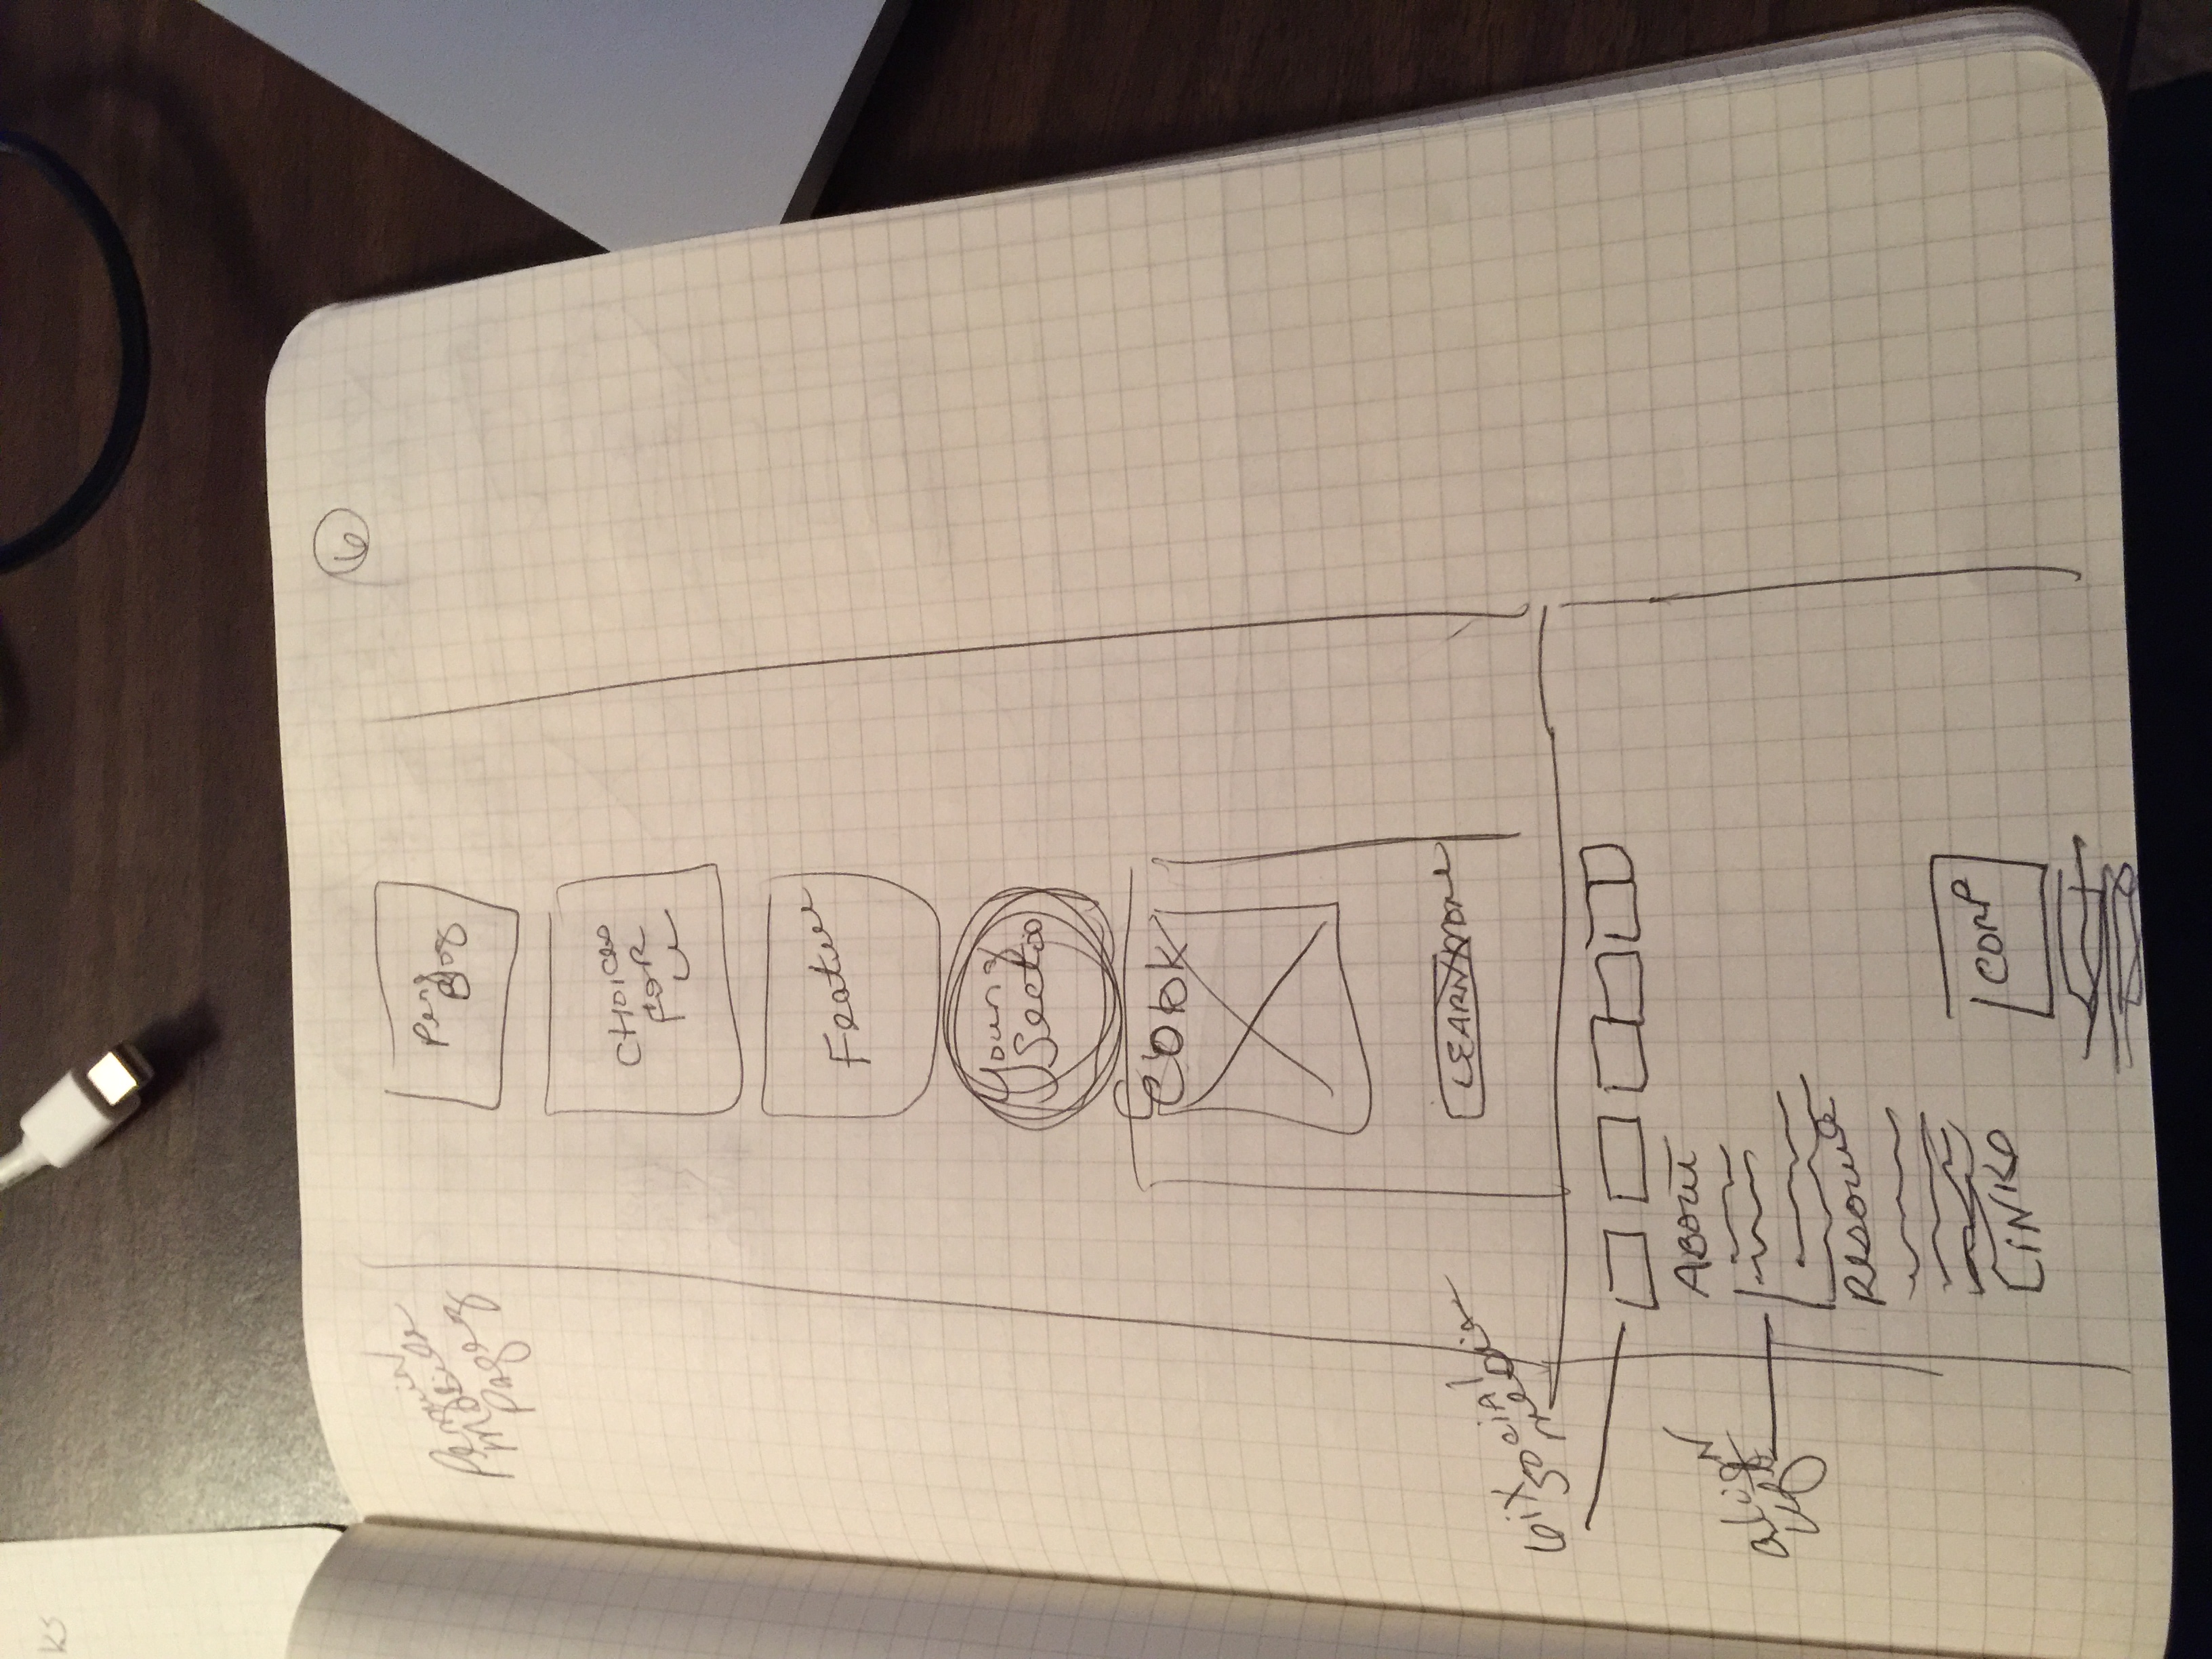 ks
6
Penguin
Mobile
Pages
Peng
Blog
CHOICES
FOR
U
Feature
Young
Section
COOK
LEARN MORE
6ix
Social
media
ABOUT
align
left
Resource
LINKS
CORP